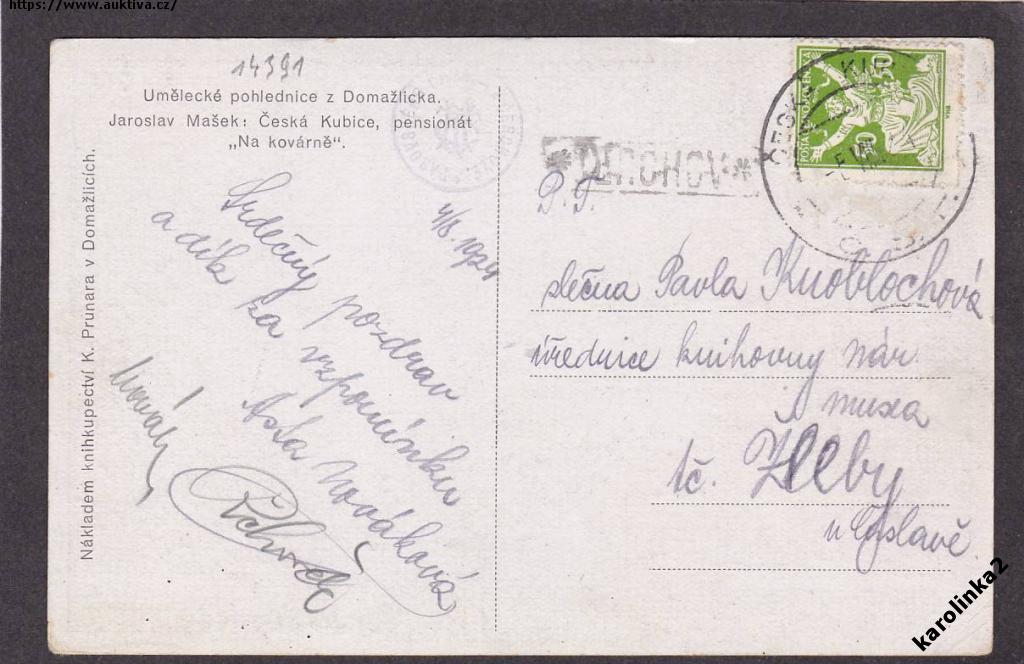 https://www.auktiva.cz/
14391
Umělecké pohlednice z Domažlicka.
Jaroslav Mašek: Česká Kubice, pensionát
„Na kovárně".
Nákladem knihkupectví K. Prunara v Domažlicích.
Srdečný pozdrav
a dík za vzpomínku
Nováková
Novák
4/8.1924
*ČERCHOV*
50
50
P. T.
slečna Pavla Knoblochová
úřednice knihovny nár.
musea
tč. Žleby
u Čáslavě.
karolinka2